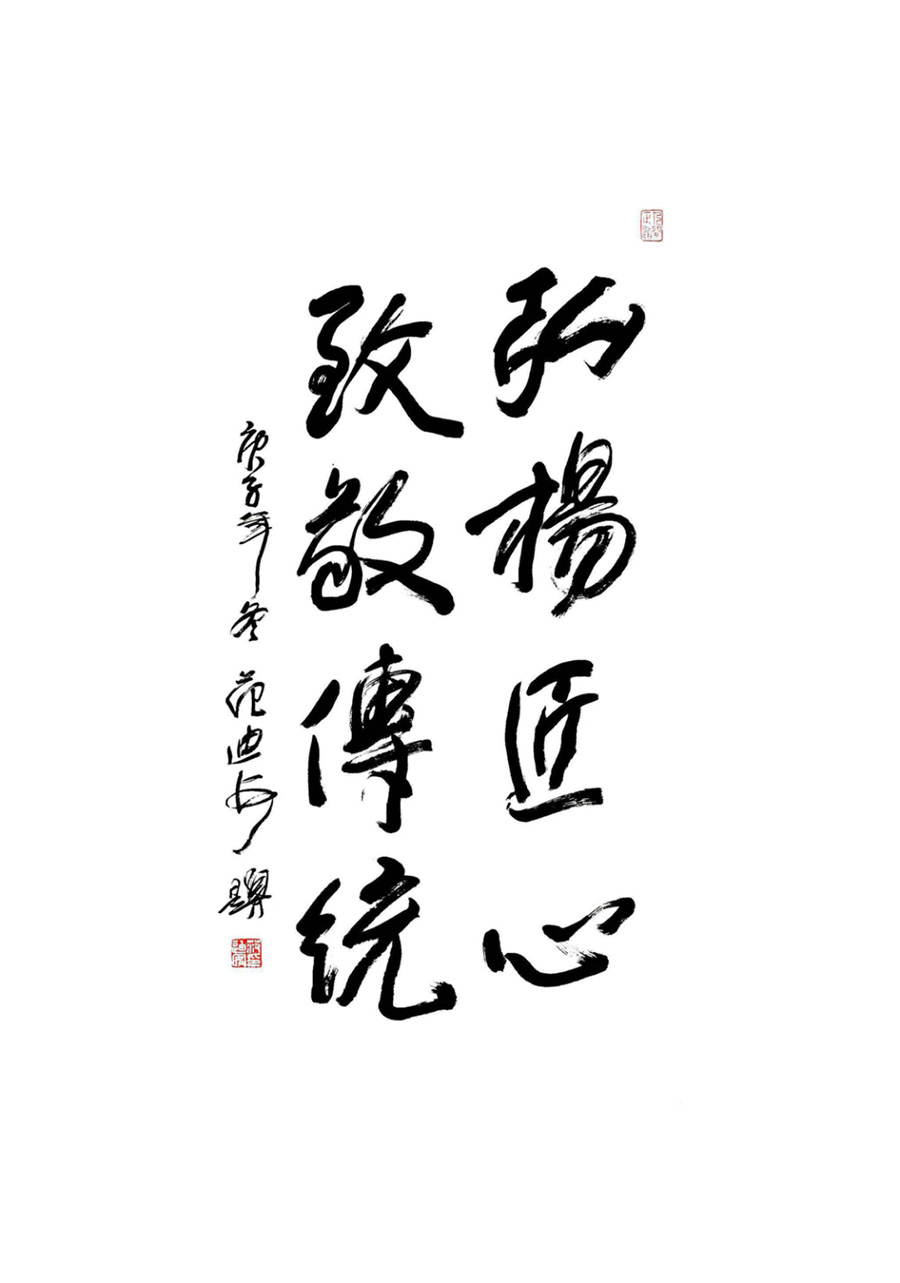 弘楊匠心
致敬傳統
庚子年冬 范迪安題